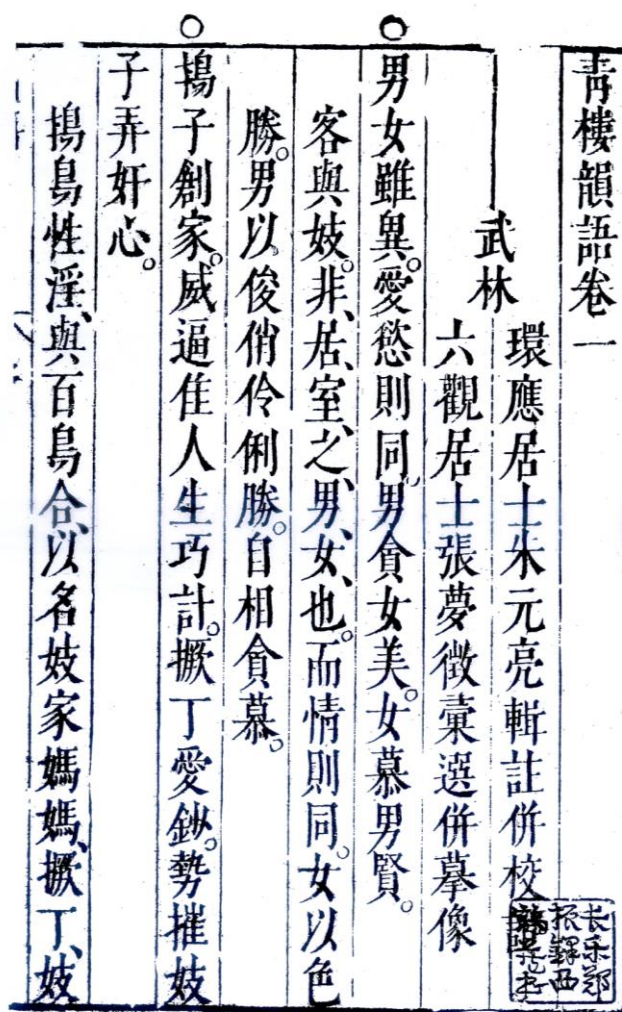 青樓韻語卷一
武林
環應居士朱元亮輯註併校
六觀居士張夢徵彙選併摹像
男女雖異。愛慾則同。男貪女美。女慕男賢。
客與妓。非、居、室、之、男、女、也。而情則同。女以色
勝。男以俊俏伶俐勝。自相貪慕。
鴇子創家。威逼佳人生巧計。撅丁愛鈔。勢摧妓
子弄奸心。
鴇鳥性淫、與百鳥合、以名妓家媽媽、撅丁、妓
长乐郑
振鐸西